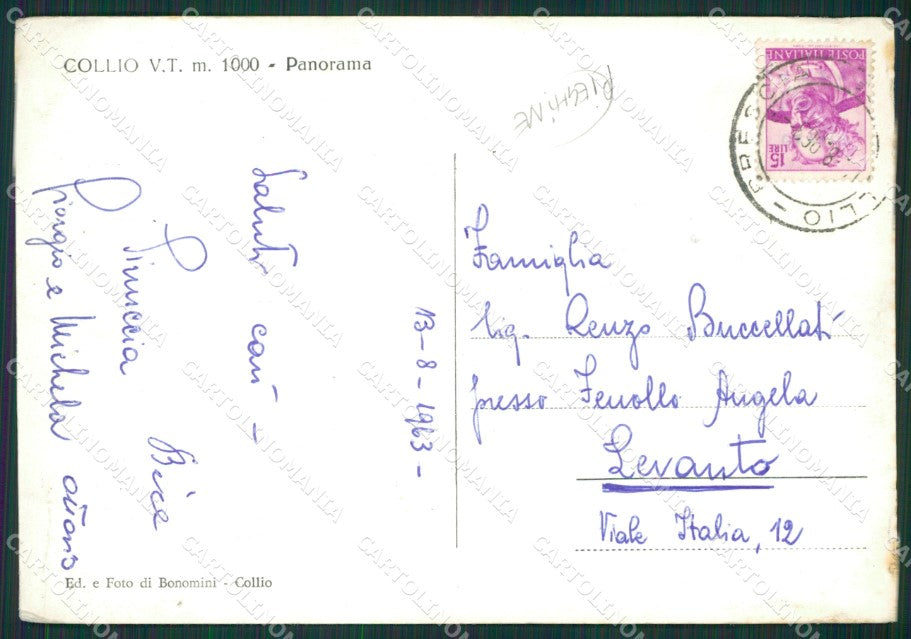 COLLIO V.T. m. 1000 - Panorama
POSTE ITALIANE
15
LIRE
BRESCIA
COLLIO
13-8-1963-
Saluti cari -
Pinuccia Bice
Giorgio e Michela
Famiglia
Sig. Renzo Buccellati
presso Fenollo Angela
Levanto
Viale Italia, 12
Ed. e Foto di Bonomini - Collio
CARTOLINOMANIA